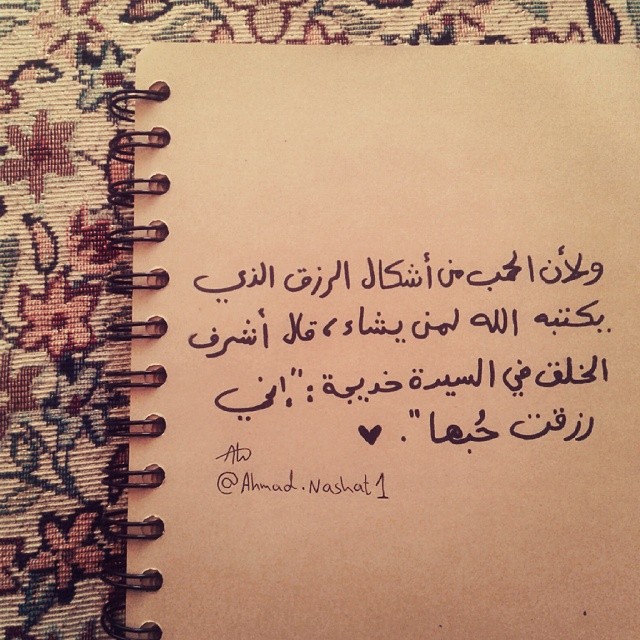 ولأن الحب من أشكال الرزق الذي
يكتبه الله لمن يشاء، قال أشرف
الخلق في السيدة خديجة: "إني
رزقت حُبها". ♥
@Ahmad.Nashat1